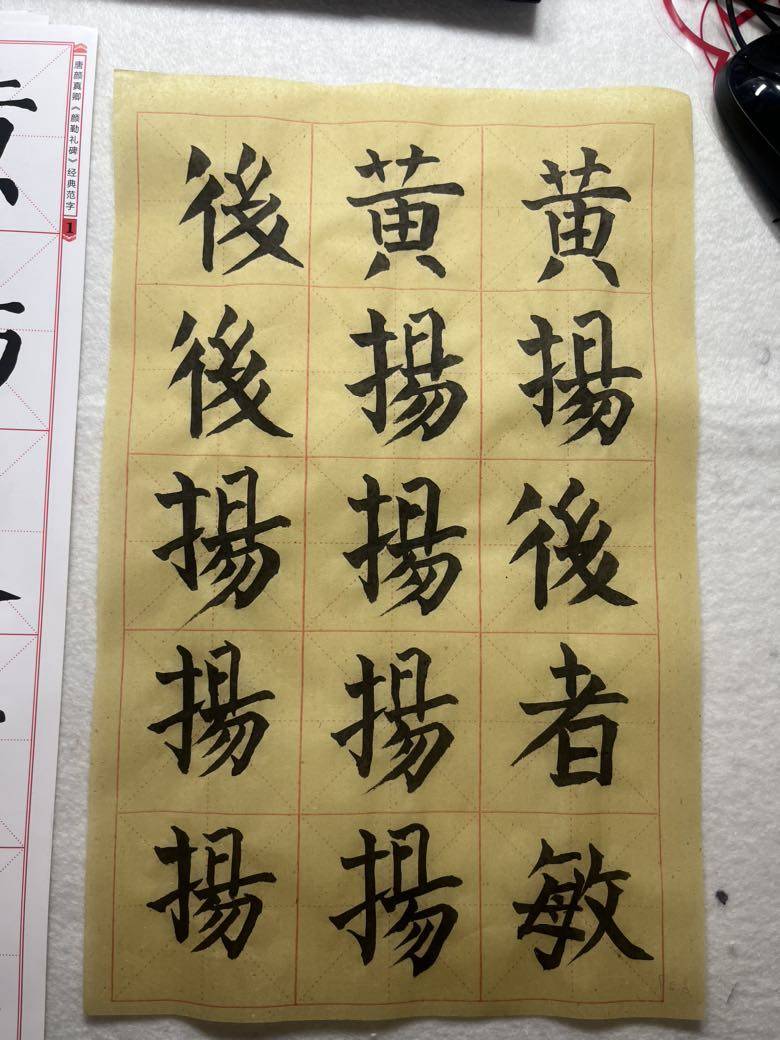 黄揚後者敏
黄揚揚揚揚
後後揚揚揚
唐颜真卿《颜勤礼碑》经典范字
1